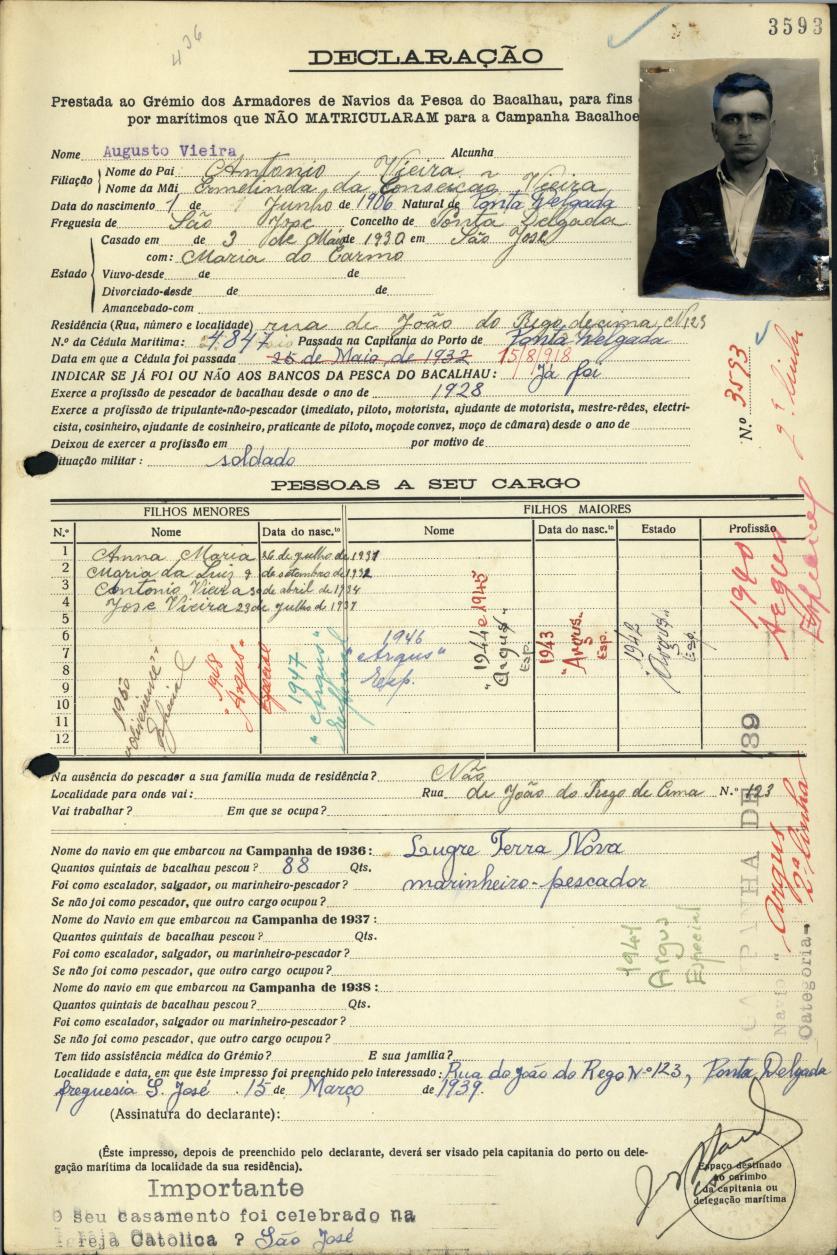 3593
436
DECLARAÇÃO
Prestada ao Grémio dos Armadores de Navios da Pesca do Bacalhau, para fins
por marítimos que NÃO MATRICULARAM para a Campanha Bacalhoe
Nome Augusto Vieira Alcunha
Filiação Nome do Pai Antonio Vieira
Nome da Mãi Ermelinda da Conseicão Vieira
Data do nascimento 1 de Junho de 1906 Natural de Ponta Delgada
Freguesia de São Jose Concelho de Ponta Delgada
Estado Casado em de 3 de Maio de 1930 em São José
com: Maria do Carmo
Viuvo-desde de de
Divorciado-desde de de
Amancebado-com
Residência (Rua, número e localidade) rua de João do Rego decima, Nº123
N.º da Cédula Marítima: 4.847 Passada na Capitania do Porto de Ponta Delgada
Data em que a Cédula foi passada 25 de Maio de 1932 15/8/918
INDICAR SE JÁ FOI OU NÃO AOS BANCOS DA PESCA DO BACALHAU: Já foi
Exerce a profissão de pescador de bacalhau desde o ano de 1928
Exerce a profissão de tripulante-não-pescador (imediato, piloto, motorista, ajudante de motorista, mestre-rêdes, electri-
cista, cosinheiro, ajudante de cosinheiro, praticante de piloto, moço de convez, moço de câmara) desde o ano de
Deixou de exercer a profissão em por motivo de
ituação militar: soldado
N.º 3593
2ª linha
PESSOAS A SEU CARGO
FILHOS MENORES FILHOS MAIORES
N.º Nome Data do nasc.to Nome Data do nasc.to Estado Profissão
1 Anna Maria 26 de julho de 1931
2 Maria da Luiz 9 de setembro de 1932
3 Antonio Vieira 30 de abril de 1934
4 Jose Vieira 23 de julho de 1937
5
6
7
8
9
10
11
12
1950
Especial
1948
"Argus"
Especial
1947
"Argus"
Especial
1946
"Argus"
Esp.
1944 e 1945
"Argus"
Esp.
1943
"Argus"
Esp.
1942
"Argus"
Esp.
1940
Argus
Especial
Na ausência do pescador a sua família muda de residência? Não
Localidade para onde vai: Rua de João do Rego de Cima N.º 123
Vai trabalhar? Em que se ocupa?
Nome do navio em que embarcou na Campanha de 1936: Lugre Terra Nova
Quantos quintais de bacalhau pescou? 88 Qts.
Foi como escalador, salgador, ou marinheiro-pescador? marinheiro-pescador
Se não foi como pescador, que outro cargo ocupou?
Nome do Navio em que embarcou na Campanha de 1937:
Quantos quintais de bacalhau pescou? Qts.
Foi como escalador, salgador, ou marinheiro-pescador?
Se não foi como pescador, que outro cargo ocupou?
Nome do navio em que embarcou na Campanha de 1938:
Quantos quintais de bacalhau pescou? Qts.
Foi como escalador, salgador ou marinheiro-pescador?
Se não foi como pescador, que outro cargo ocupou?
1941
Argus
Especial
CAMPANHA DE 939
Navio "Argus
Categoria 2ª linha
Tem tido assistência médica do Grémio? E sua família?
Localidade e data, em que êste impresso foi preenchido pelo interessado: Rua do João do Rego Nº 123, Ponta Delgada
freguesia S. José . 15 de Março de 1939.
(Assinatura do declarante):
(Êste impresso, depois de preenchido pelo declarante, deverá ser visado pela capitania do porto ou dele-
gação marítima da localidade da sua residência).
Espaço destinado
ao carimbo
da capitania ou
delegação marítima
Importante
O seu casamento foi celebrado na
Igreja Catolica ? São José